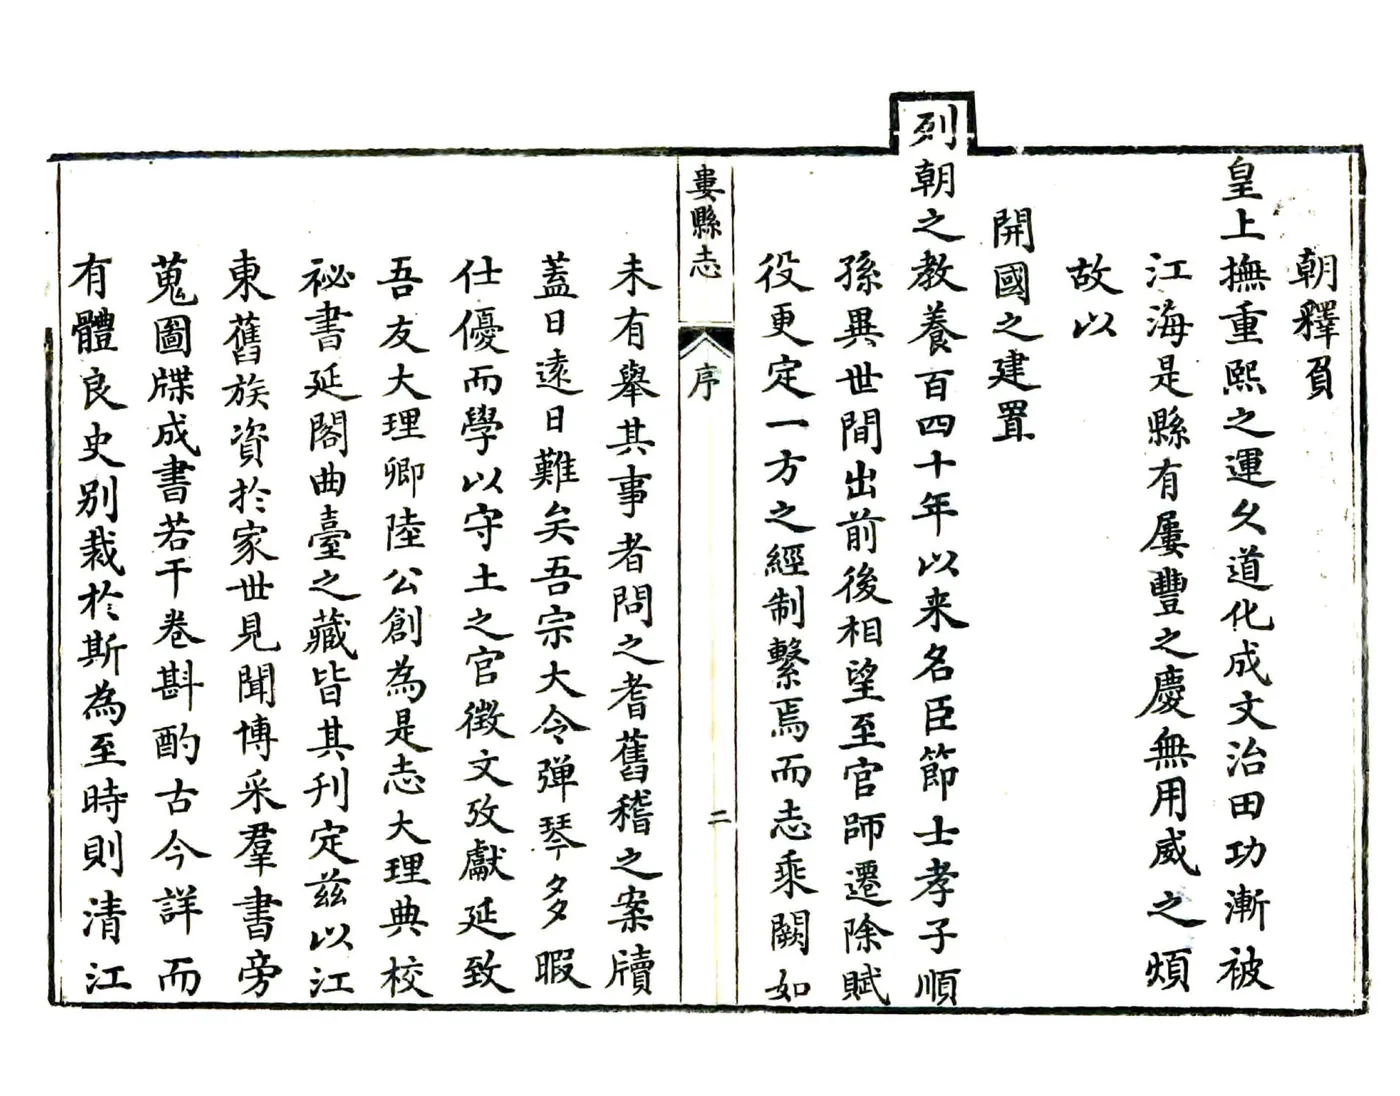 朝釋負
皇上撫重熙之運久道化成文治田功漸被
江海是縣有屢豐之慶無用威之煩
故以
開國之建置
列朝之教養百四十年以来名臣節士孝子順
孫異世間出前後相望至官師遷除賦
役更定一方之經制繫焉而志乘闕如
婁縣志
序
二
未有舉其事者問之耆舊稽之案牘
蓋日遠日難矣吾宗大令彈琴多暇
仕優而學以守土之官徵文攷獻延致
吾友大理卿陸公創為是志大理典校
祕書延閣曲臺之藏皆其刊定兹以江
東舊族資於家世見聞博采羣書旁
蒐圖牒成書若干卷斟酌古今詳而
有體良史别裁於斯為至時則清江